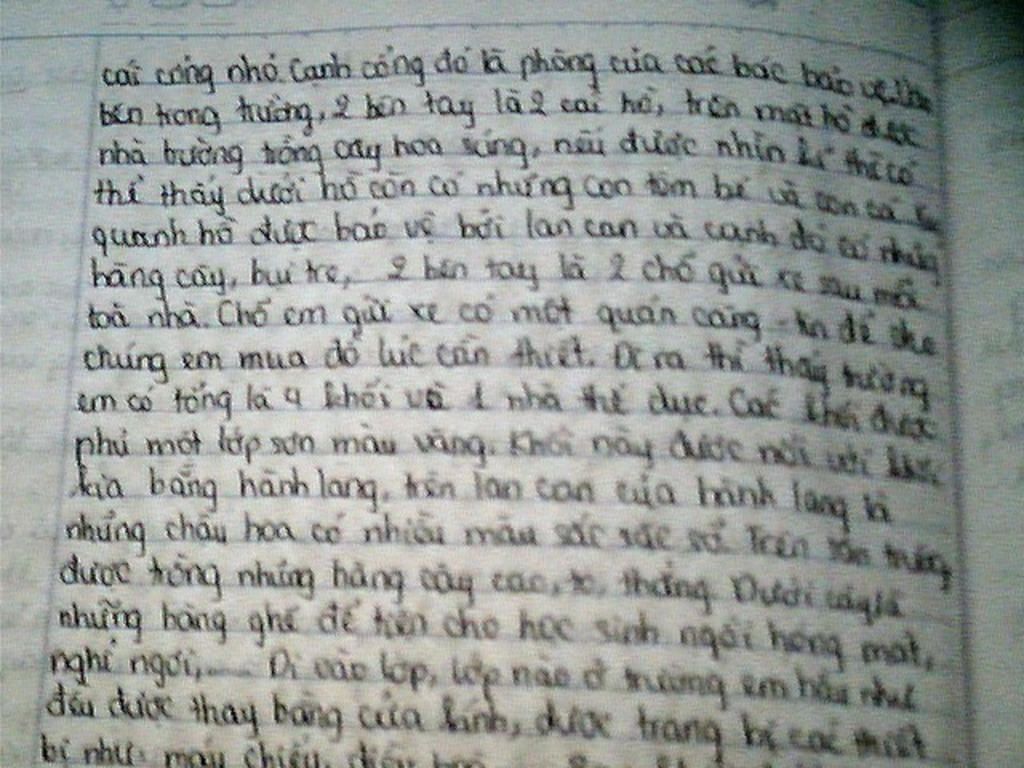 cái cổng nhỏ. Cạnh cổng đó là phòng của các bác bảo vệ.
bên trong trường, 2 bên tay là 2 cái hồ, trên mặt hồ được
nhà trường trồng cây hoa súng, nếu được nhìn kĩ thì có
thể thấy dưới hồ còn có những con tôm bé và con cá
quanh hồ được bảo vệ bởi lan can và cạnh đó có những
hàng cây, bụi tre, 2 bên tay là 2 chỗ gửi xe sau mỗi
toà nhà. Chỗ em gửi xe có một quán căng-tin để cho
chúng em mua đồ lúc cần thiết. Đi ra thì thấy trường
em có tổng là 4 khối và 1 nhà thể dục. Các khối được
phủ một lớp sơn màu vàng. Khối này được nối với khối
kia bằng hành lang, trên lan can của hành lang là
những chậu hoa có nhiều màu sắc sặc sỡ. Trên sân trường
được trồng những hàng cây cao, to, thẳng. Dưới cây là
những hàng ghế để tiện cho học sinh ngồi hóng mát,
nghỉ ngơi,..... Đi vào lớp, lớp nào ở trường em hầu như
đều được thay bằng cửa kính, được trang bị các thiết
bị như: máy chiếu, điều